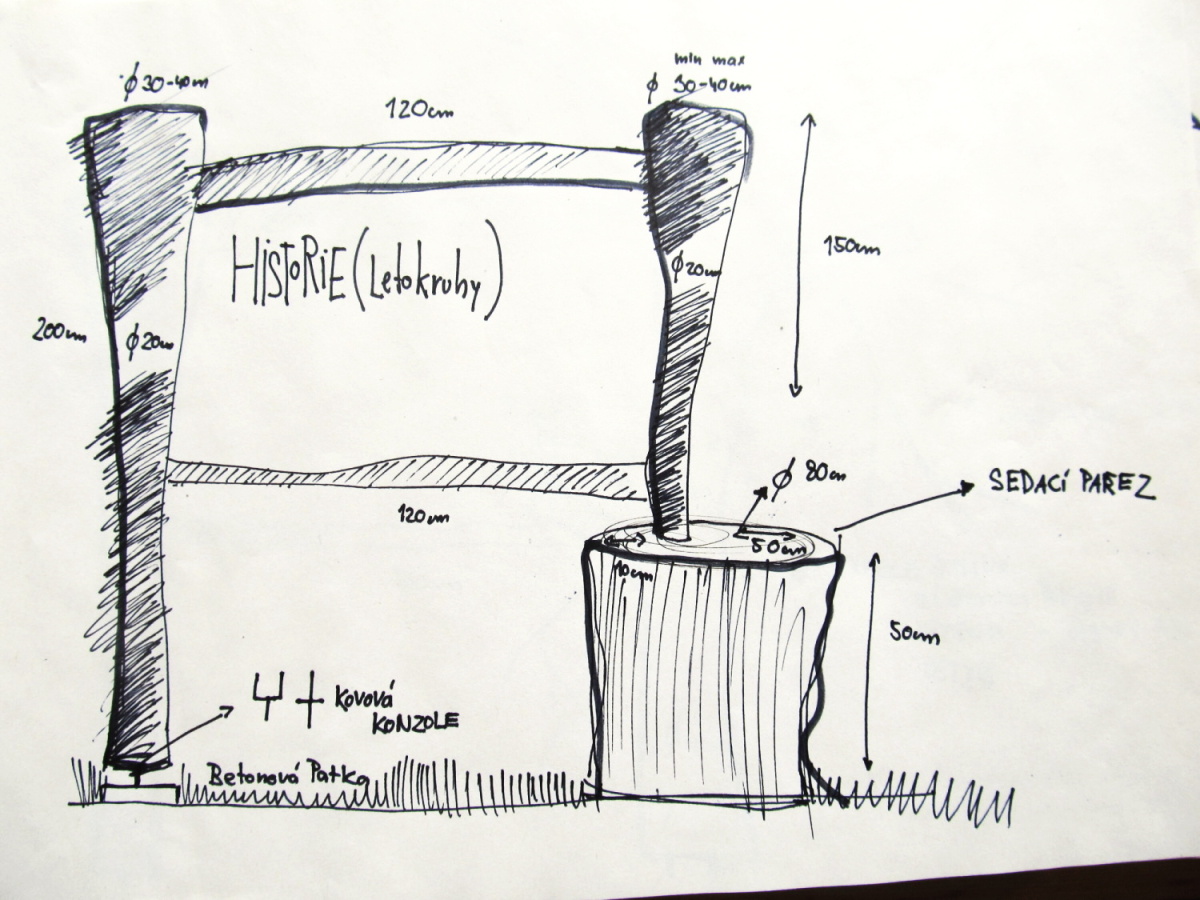 ϕ 30-40cm
min max
ϕ 30-40cm
120cm
150cm
HISTORIE (Letokruhy)
ϕ 20cm
200cm
ϕ 20cm
ϕ 80cm
SEDACÍ PAŘEZ
120cm
50cm
10cm
50cm
KOVOVÁ
KONZOLE
Betonová Patka